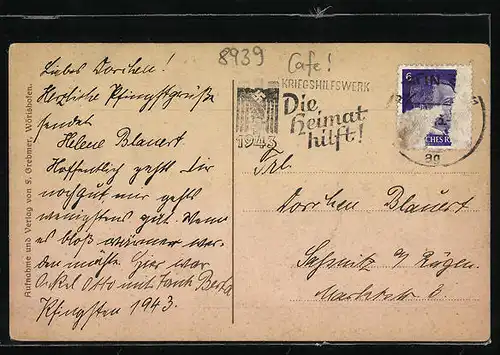 8939 Cafe!
Liebes Dorchen!
Herzliche Pfingstgrüße
sendet
Helene Blauert.
Hoffentlich geht's Dir
noch gut, mir geht's
wenigstens gut. Wenn
es bloß wärmer wer-
den möchte. Hier war
Onkel Otto mit Tante Berta
Pfingsten 1943.
Aufnahme und Verlag von S. Grebmer, Wörishofen.
KRIEGSHILFSWERK
1943
Die
Heimat
hilft!
6
LIN
ag
CHES R
Frl.
Dorchen Blauert
Saßnitz a/ Rügen.
Marktstr. 8.